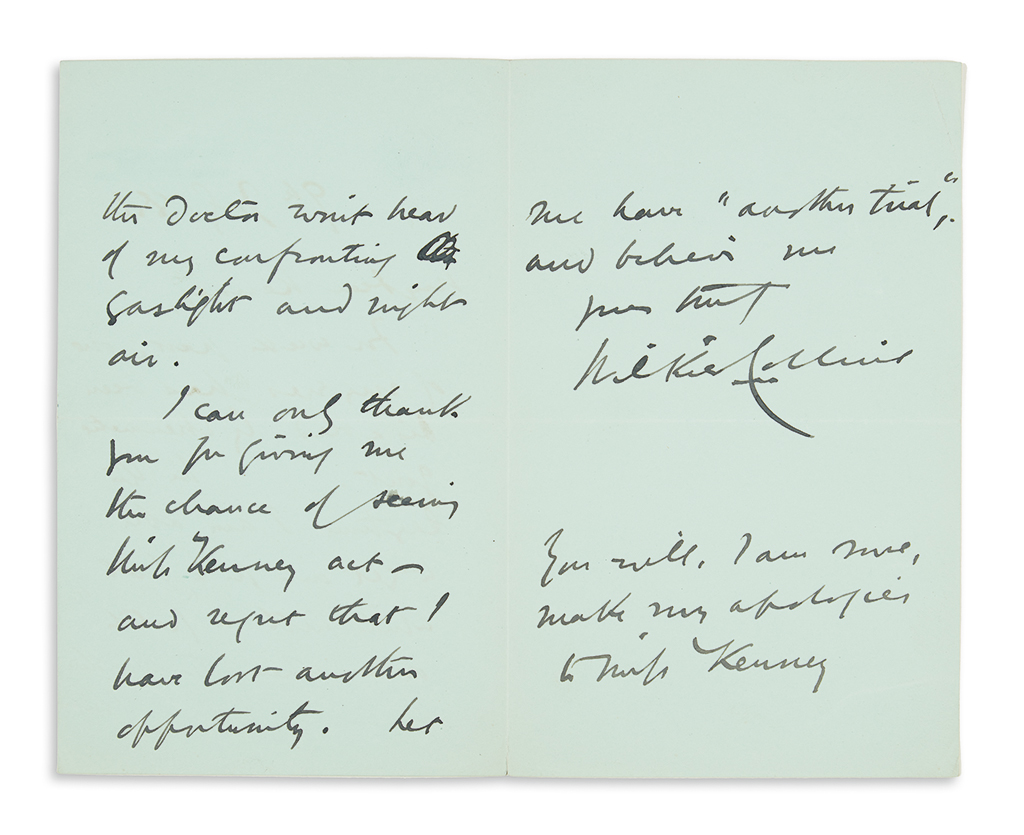 the Doctor won't hear
of my confronting
gaslight and night
air.
I can only thank
you for giving me
the chance of seeing
Miss Kenney act —
and regret that I
have lost another
opportunity. Let
me have "another trial,"
and believe me
yours truly
Wilkie Collins
You will, I am sure,
make my apologies
to Miss Kenney